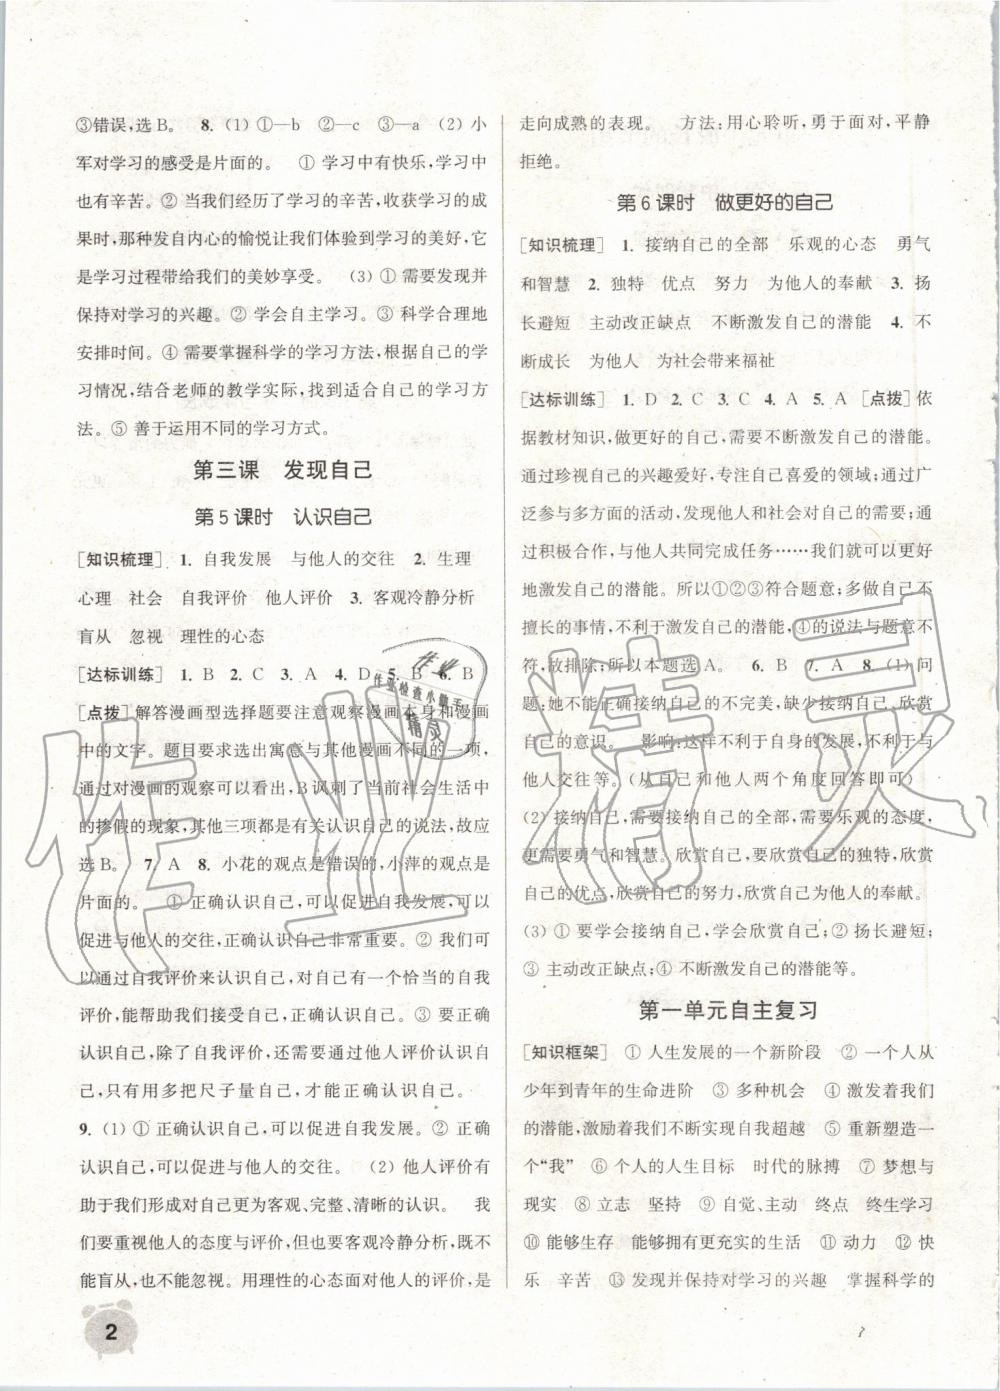 ③错误,选B。 8. (1) ①—b ②—c ③—a (2) 小
军对学习的感受是片面的。 ① 学习中有快乐,学习中
也有辛苦。② 当我们经历了学习的辛苦,收获学习的成
果时,那种发自内心的愉悦让我们体验到学习的美好,它
是学习过程带给我们的美妙享受。 (3) ① 需要发现并
保持对学习的兴趣。② 学会自主学习。③ 科学合理地
安排时间。④ 需要掌握科学的学习方法,根据自己的学
习情况,结合老师的教学实际,找到适合自己的学习方
法。⑤ 善于运用不同的学习方式。
第三课 发现自己
第5课时 认识自己
[知识梳理] 1. 自我发展 与他人的交往 2. 生理
心理 社会 自我评价 他人评价 3. 客观冷静分析
盲从 忽视 理性的心态
[达标训练] 1. B 2. C 3. A 4. D 5. B 6. B
[点拨] 解答漫画型选择题要注意观察漫画本身和漫画
中的文字。题目要求选出寓意与其他漫画不同的一项,
通过对漫画的观察可以看出,B讽刺了当前社会生活中
的掺假的现象,其他三项都是有关认识自己的说法,故应
选B。 7. A 8. 小花的观点是错误的,小萍的观点是
片面的。 ① 正确认识自己,可以促进自我发展,可以
促进与他人的交往,正确认识自己非常重要。② 我们可
以通过自我评价来认识自己,对自己有一个恰当的自我
评价,能帮助我们接受自己,正确认识自己。③ 要正确
认识自己,除了自我评价,还需要通过他人评价认识自
己,用多把尺子量自己,才能正确认识自己。
9. (1) ① 正确认识自己,可以促进自我发展。② 正确
认识自己,可以促进与他人的交往。 (2) 他人评价有
助于我们形成对自己更为客观、完整、清晰的认识。 我
们要重视他人的态度与评价,但也要客观冷静分析,既不
能盲从,也不能忽视。用理性的心态面对他人的评价,是
2
走向成熟的表现。 方法:用心聆听,勇于面对,平静
拒绝。
第6课时 做更好的自己
[知识梳理] 1. 接纳自己的全部 乐观的心态 勇气
和智慧 2. 独特 优点 努力 为他人的奉献 3. 扬
长避短 主动改正缺点 不断激发自己的潜能 4. 不
断成长 为他人 为社会带来福祉
[达标训练] 1. D 2. C 3. C 4. A 5. A [点拨] 依
据教材知识,做更好的自己,需要不断激发自己的潜能。
通过珍视自己的兴趣爱好,专注自己喜爱的领域;通过广
泛参与多方面的活动,发现他人和社会对自己的需要;通
过积极合作,与他人共同完成任务……我们就可以更好
地激发自己的潜能。所以①②③符合题意;多做自己不
擅长的事情,不利于激发自己的潜能,④的说法与题意不
符,故排除;所以本题选A。 6. B 7. A 8. (1) 问
题:她不能正确对待自己的不完美,缺乏接纳自己、欣赏
自己的意识。 影响:这样不利于自身的发展,不利于与
他人交往等。(从自己和他人两个角度回答即可)
(2) 接纳自己,需要接纳自己的全部,需要乐观的态度,
更需要勇气和智慧。欣赏自己,要欣赏自己的独特,欣赏
自己的优点,欣赏自己的努力,欣赏自己为他人的奉献。
(3) ① 要学会接纳自己,学会欣赏自己;② 扬长避短;
③ 主动改正缺点;④ 不断激发自己的潜能等。
第一单元自主复习
[知识框架] ① 人生发展的一个新阶段 ② 一个人从
少年到青年的生命进阶 ③ 多种机会 ④ 激发着我们
的潜能,激励着我们不断实现自我超越 ⑤ 重新塑造一
个“我” ⑥ 个人的人生目标 时代的脉搏 ⑦ 梦想与
现实 ⑧ 立志 坚持 ⑨ 自觉、主动 终点 终生学习
⑩ 能够生存 能够拥有更充实的生活 ⑪ 动力 ⑫ 快
乐 辛苦 ⑬ 发现并保持对学习的兴趣 掌握科学的
作业精灵
作业
作业检查小助手
精灵